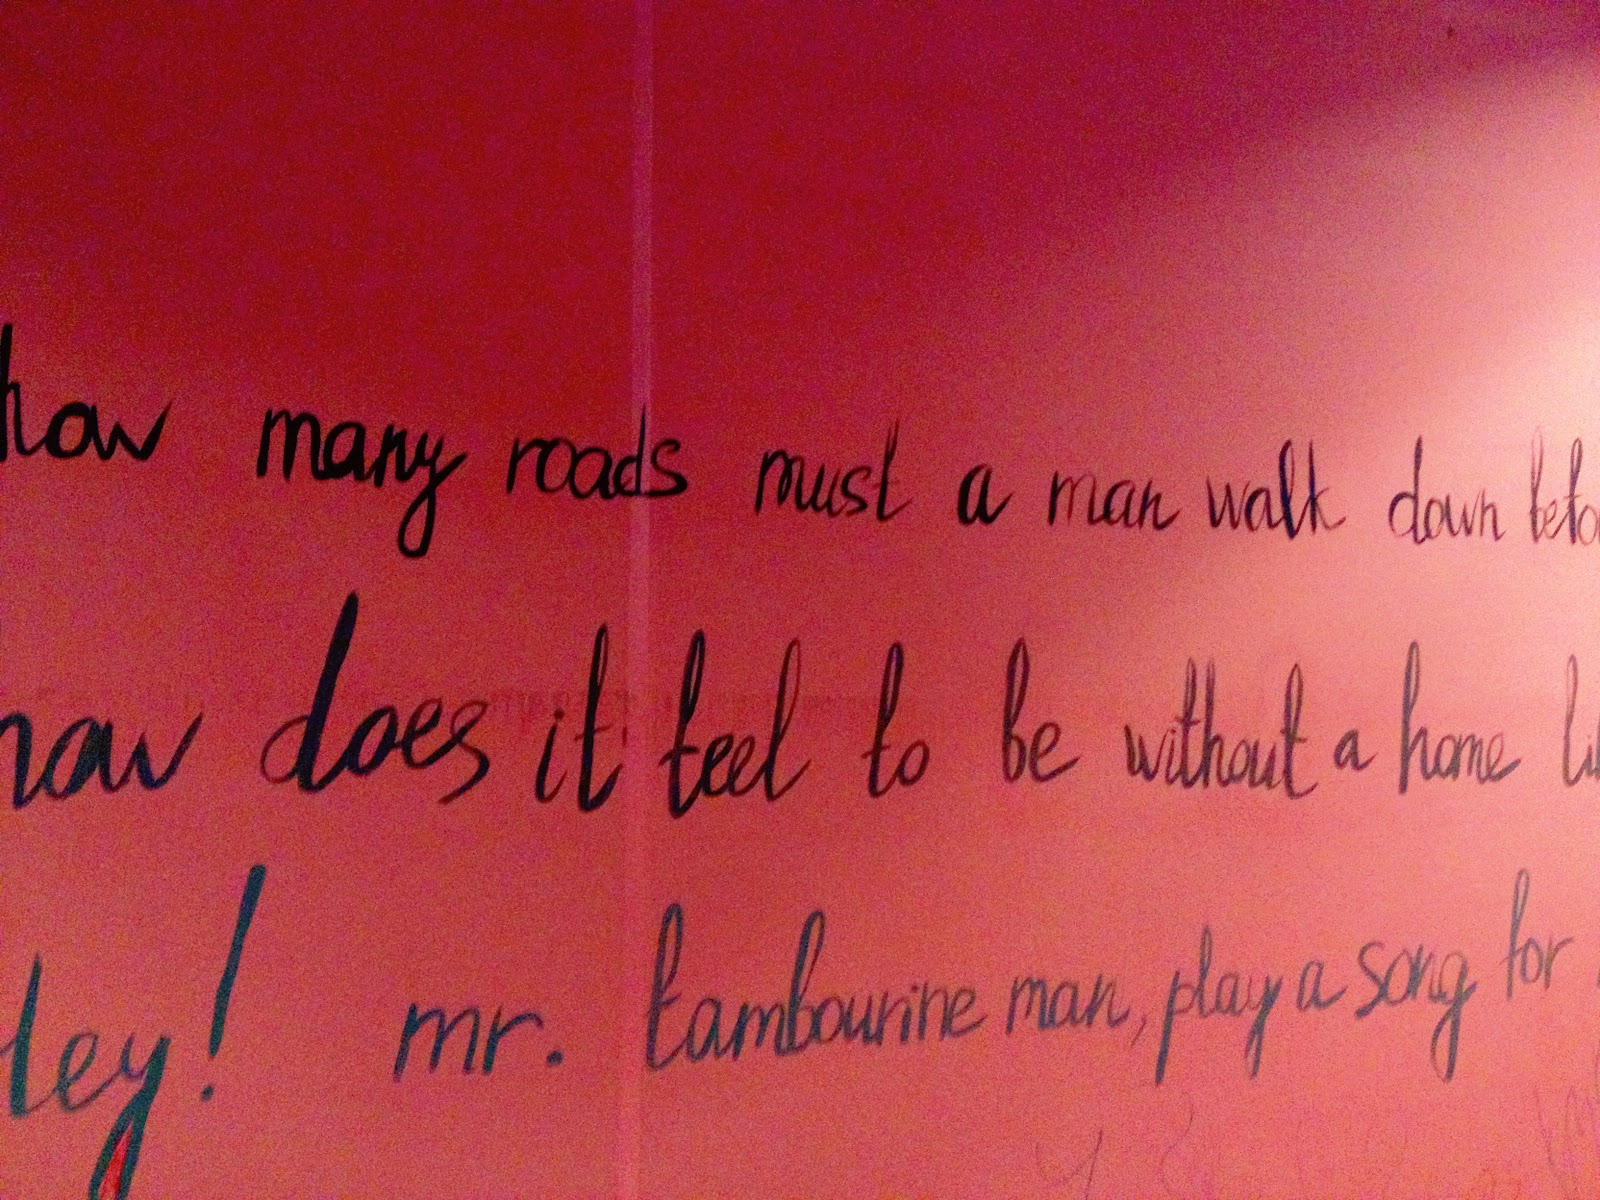 how many roads must a man walk down befo
how does it feel to be without a home li
Hey! mr. tambourine man, play a song for